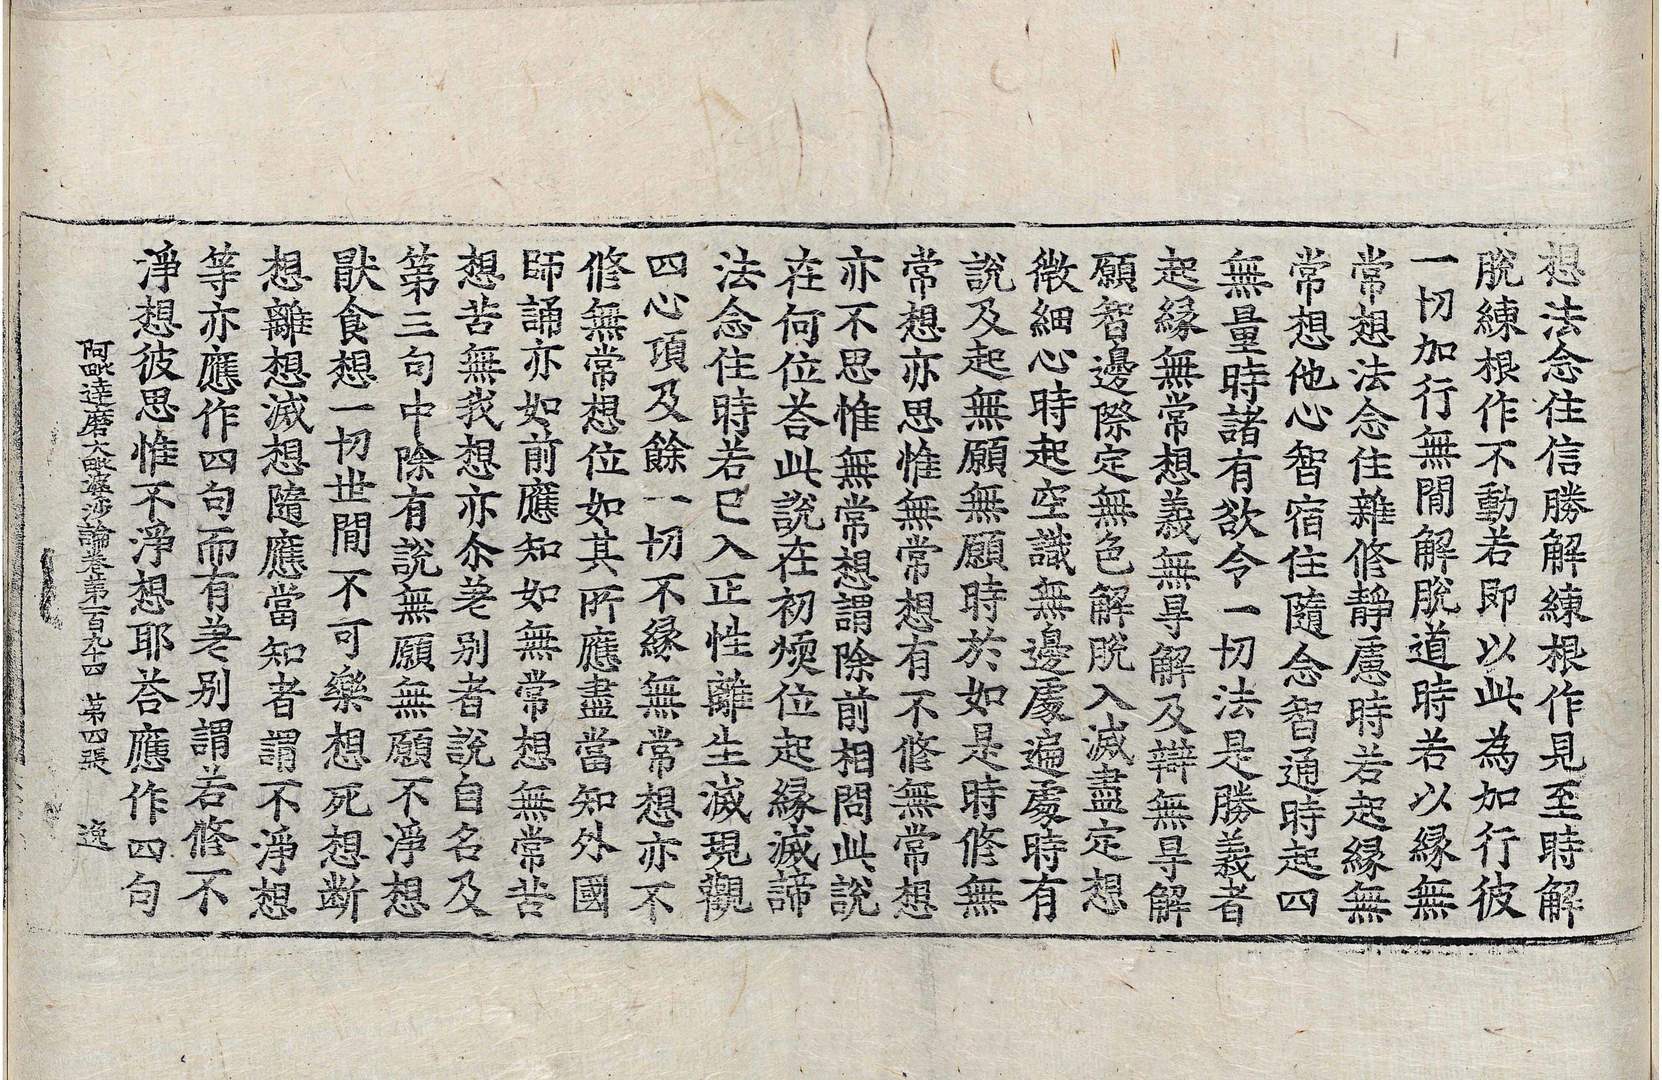 想法念住信勝解練根作見至時解
脫練根作不動若即以此為加行彼
一切加行無間解脫道時若以緣無
常想法念住雜修靜慮時若起緣無
常想他心智宿住隨念智通時起四
無量時諸有欲令一切法是勝義者
起緣無常想義無㝵解及辯無㝵解
願智邊際定無色解脫入滅盡定想
微細心時起空識無邊處遍處時有
說及起無願無願時於如是時修無
常想亦思惟無常想有不修無常想
亦不思惟無常想謂除前相問此說
在何位荅此說在初煗位起緣滅諦
法念住時若已入正性離生滅現觀
四心頂及餘一切不緣無常想亦不
修無常想位如其所應盡當知外國
師誦亦如前應知如無常想無常苦
想苦無我想亦尒差別者說自名及
第三句中除有說無願無願不淨想
猒食想一切世間不可樂想死想斷
想離想滅想隨應當知者謂不淨想
等亦應作四句而有差別謂若修不
淨想彼思惟不淨想耶荅應作四句
阿毗達磨大毗婆沙論卷第一百九十四 第四張 逸